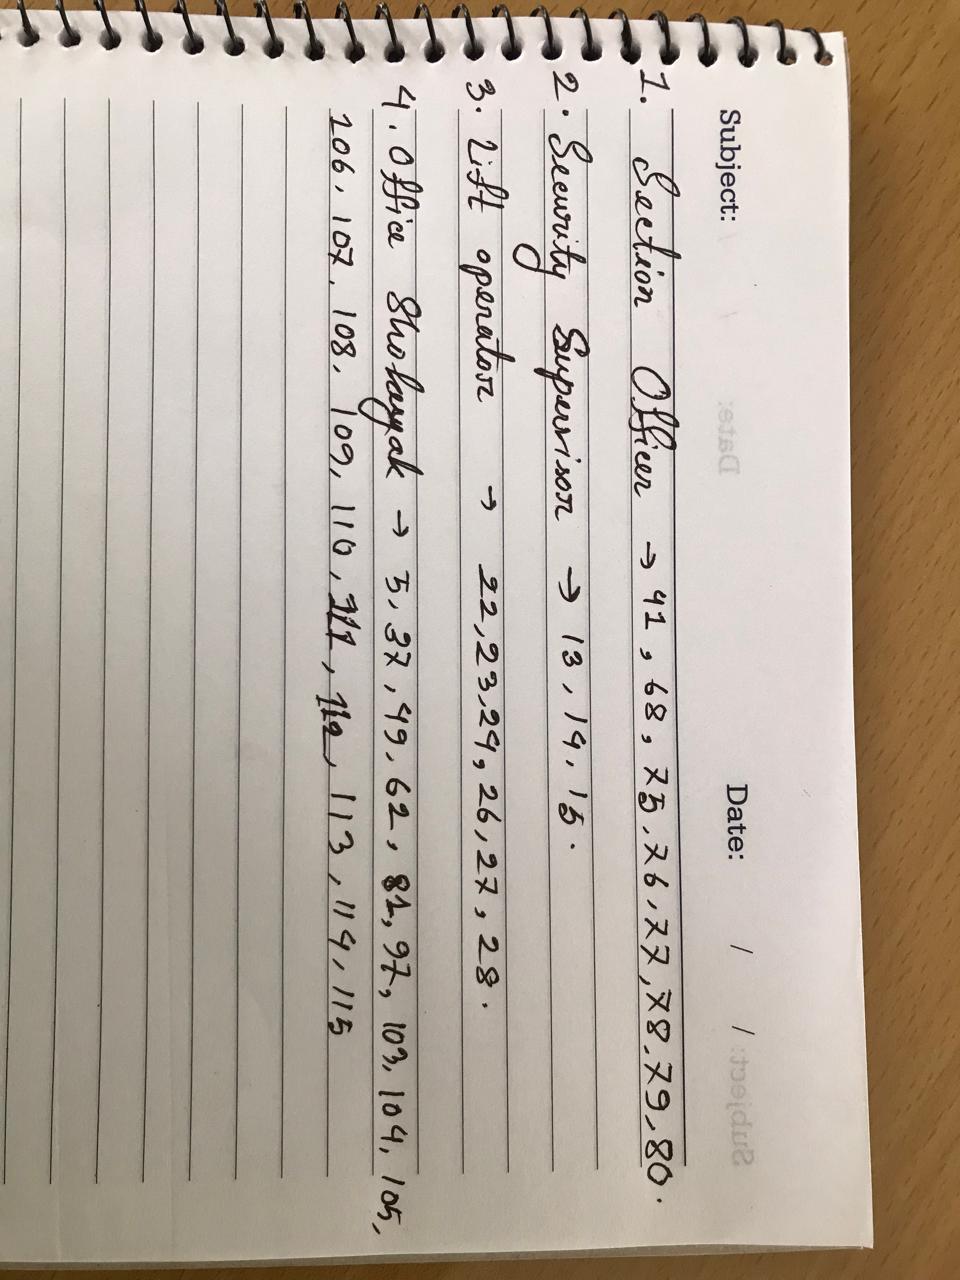 Subject: Date: / /
1. Section Officer → 41, 68, 75, 76, 77, 78, 79, 80.
2. Security Supervisor → 13, 14, 15.
3. Lift operator → 22, 23, 24, 26, 27, 28.
4. Office Shohayak → 5, 37, 49, 62, 81, 97, 103, 104, 105,
106, 107, 108, 109, 110, 111, 112, 113, 114, 115